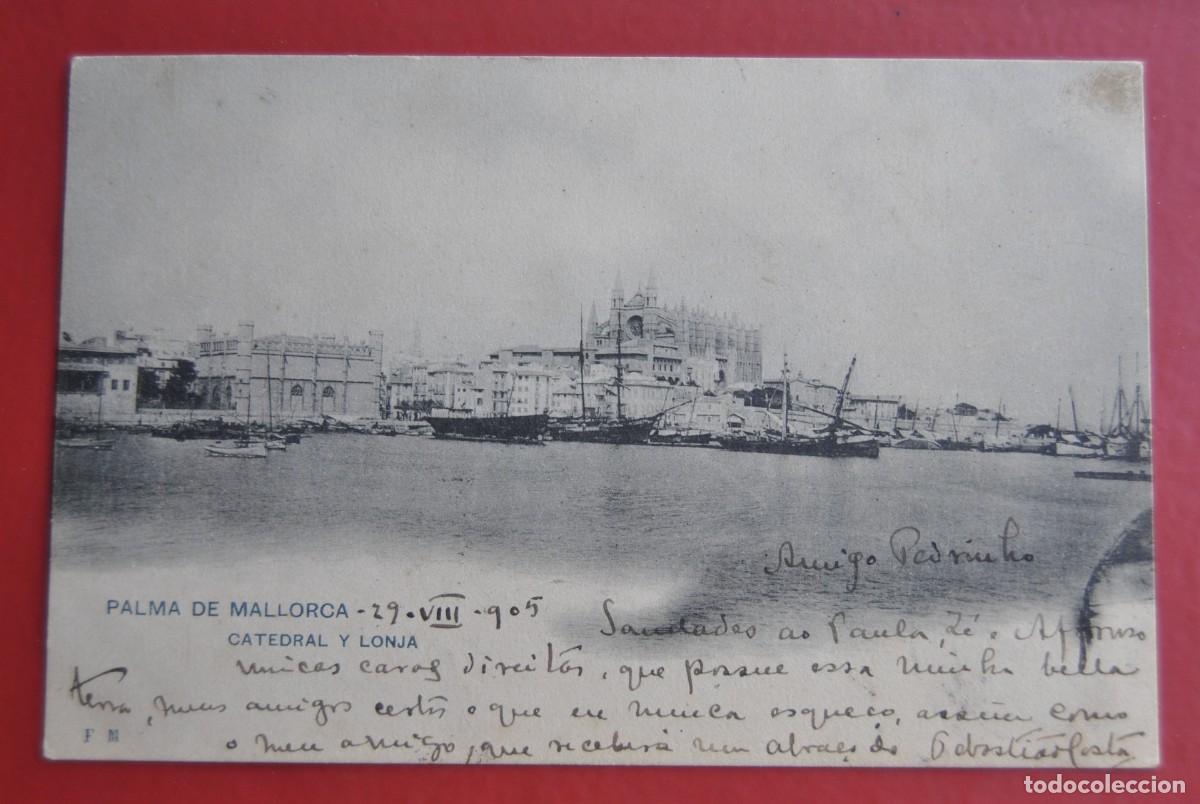 Amigo Pedrinho
PALMA DE MALLORCA - 29 - VIII - 905
CATEDRAL Y LONJA
Saudades ao Paula, Zé e Affonso
unicas caras direitas, que possue essa minha bella
terra, meus amigos certos e que eu nunca esqueço, assim como
o meu amigo, que receberá um abraço do Sebastião Costa
F M
todocoleccion